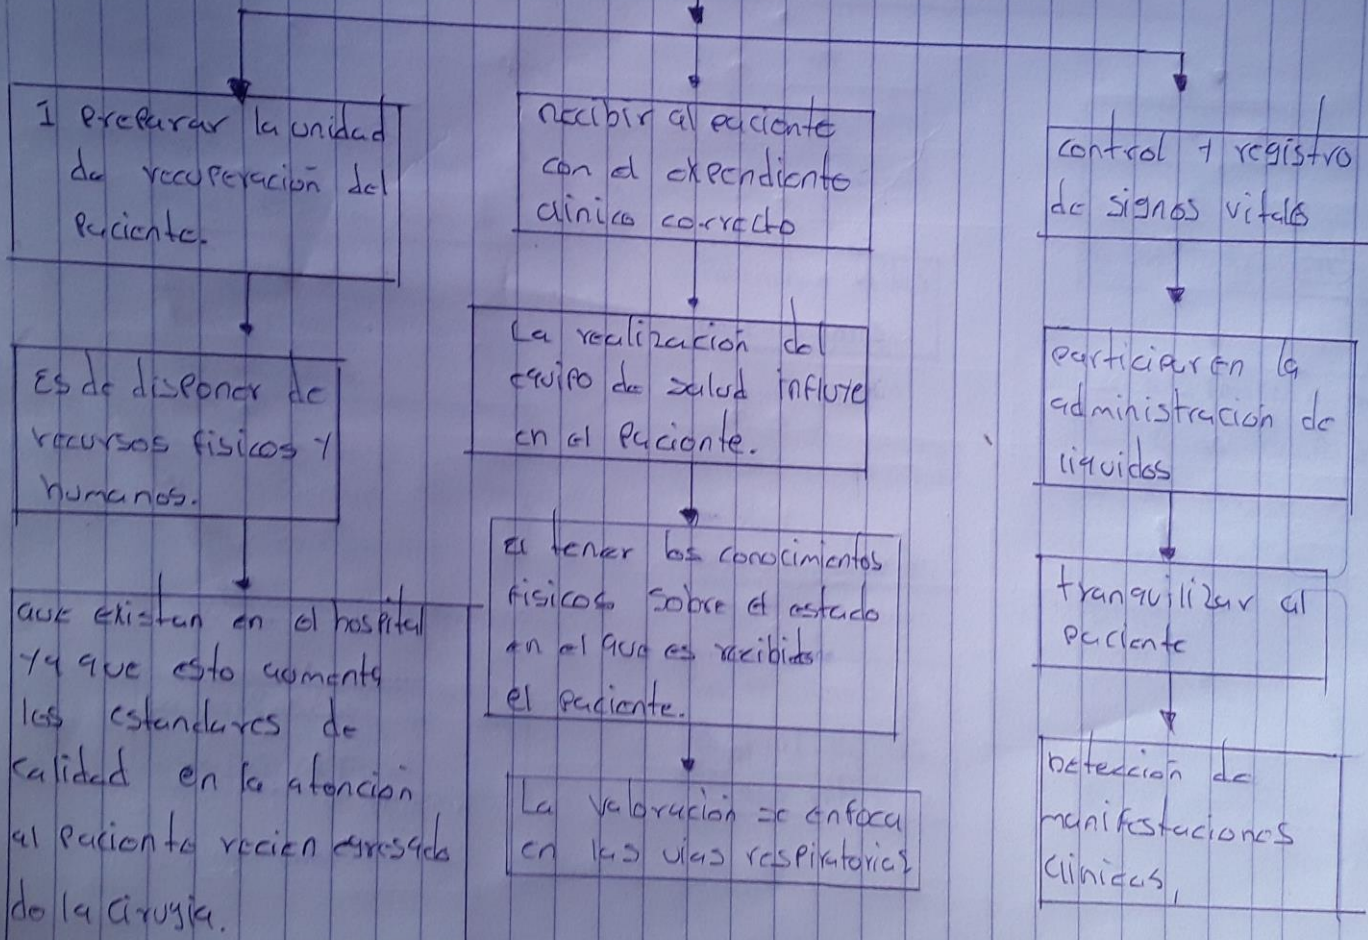 1 preparar la unidad
de recuperación del
paciente.
Es de disponer de
recursos fisicos y
humanos.
que existan en el hospital
ya que esto aumenta
los estandares de
calidad en la atención
al paciente recien egresado
de la cirugia.
recibir al paciente
con el expendiente
clinico correcto
La realización del
equipo de salud influye
en el paciente.
El tener los conocimientos
fisicos sobre el estado
en el que es recibido
el paciente.
La valoración se enfoca
en las vias respiratorias
control y registro
de signos vitales
participar en la
administración de
liquidos
tranquilizar al
paciente
Detección de
manifestaciones
clinicas,